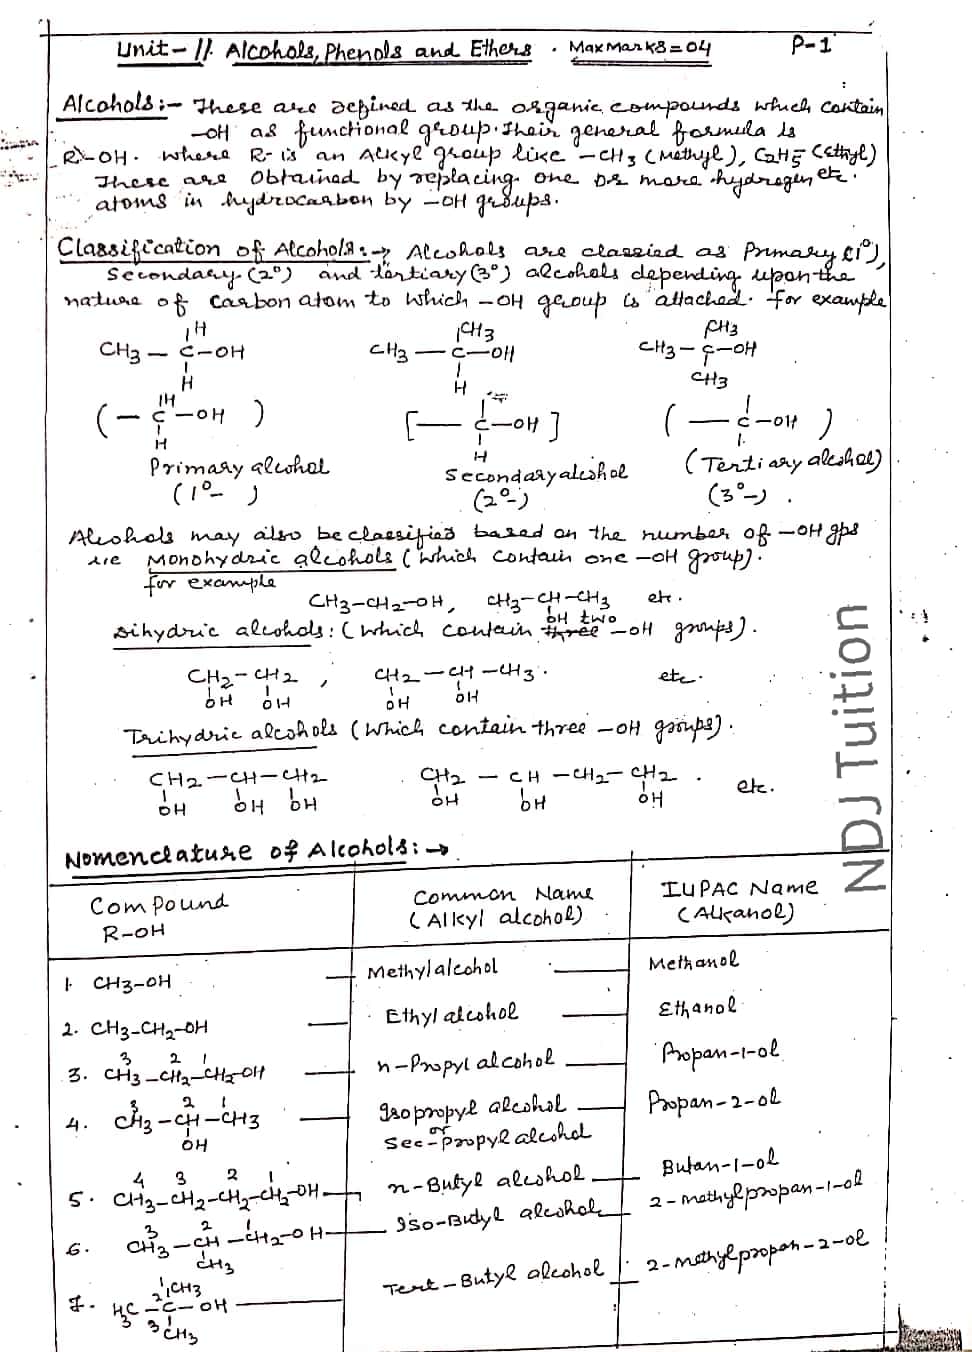 Unit-11. Alcohols, Phenols and Ethers. Max Marks=04 P-1
Alcohols:- These are defined as the organic compounds which contain
-OH as functional group. Their general formula is
R-OH. where R- is an Alkyl group like -CH3 (Methyl), C2H5 (ethyl)
These are obtained by replacing one or more hydrogen etc.
atoms in hydrocarbon by -OH groups.
Classification of Alcohols:→ Alcohols are classied as Primary (1°),
Secondary (2°) and tertiary (3°) alcohols depending upon the
nature of Carbon atom to which -OH group is attached. for example
H CH3 CH3
CH3 - C-OH CH3 - C-OH CH3 - C-OH
H H CH3
H
( - C-OH ) [ - C-OH ] ( - C-OH )
H H
Primary alcohol Secondary alcohol (Tertiary alcohol)
(1°- ) (2°-) (3°-).
Alcohols may also be classified based on the number of -OH gps
are Monohydric alcohols (which contain one -OH group).
for example
CH3-CH2-OH, CH3-CH-CH3 etc.
OH two
Dihydric alcohols: (which contain three -OH groups).
CH2-CH2, CH2-CH-CH3. etc.
OH OH OH OH
Trihydric alcohols (which contain three -OH groups).
CH2-CH-CH2 CH2 - CH -CH2- CH2. etc.
OH OH OH OH OH OH
NDJ Tuition
Nomenclature of Alcohols:→
Compound Common Name IUPAC Name
R-OH (Alkyl alcohol) (Alkanol)
1. CH3-OH - Methyl alcohol - Methanol
2. CH3-CH2-OH - Ethyl alcohol - Ethanol
3 2 1
3. CH3-CH2-CH2-OH - n-Propyl alcohol - Propan-1-ol
3 2 1
4. CH3-CH-CH3 - Isopropyl alcohol - Propan-2-ol
OH or
Sec-propyl alcohol
4 3 2 1
5. CH3-CH2-CH2-CH2-OH - n-Butyl alcohol - Butan-1-ol
3 2 1
6. CH3-CH-CH2-OH - Iso-Butyl alcohol - 2-methylpropan-1-ol
CH3
1CH3
7. H3C -2C- OH - Tert-Butyl alcohol 2-methylpropan-2-ol
3 CH3